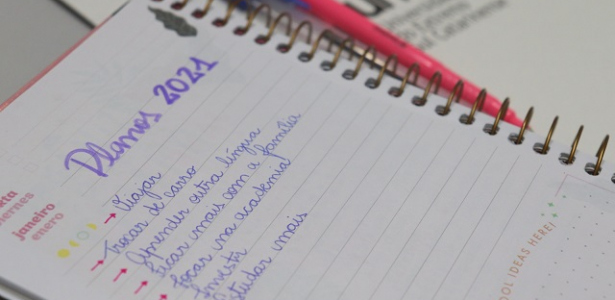 Planos 2021
Viajar
Trocar de carro
Aprender outra língua
Ficar mais com a família
Focar na academia
Investir
Estudar mais
janeiro
enero
OOL IDEAS HERE!